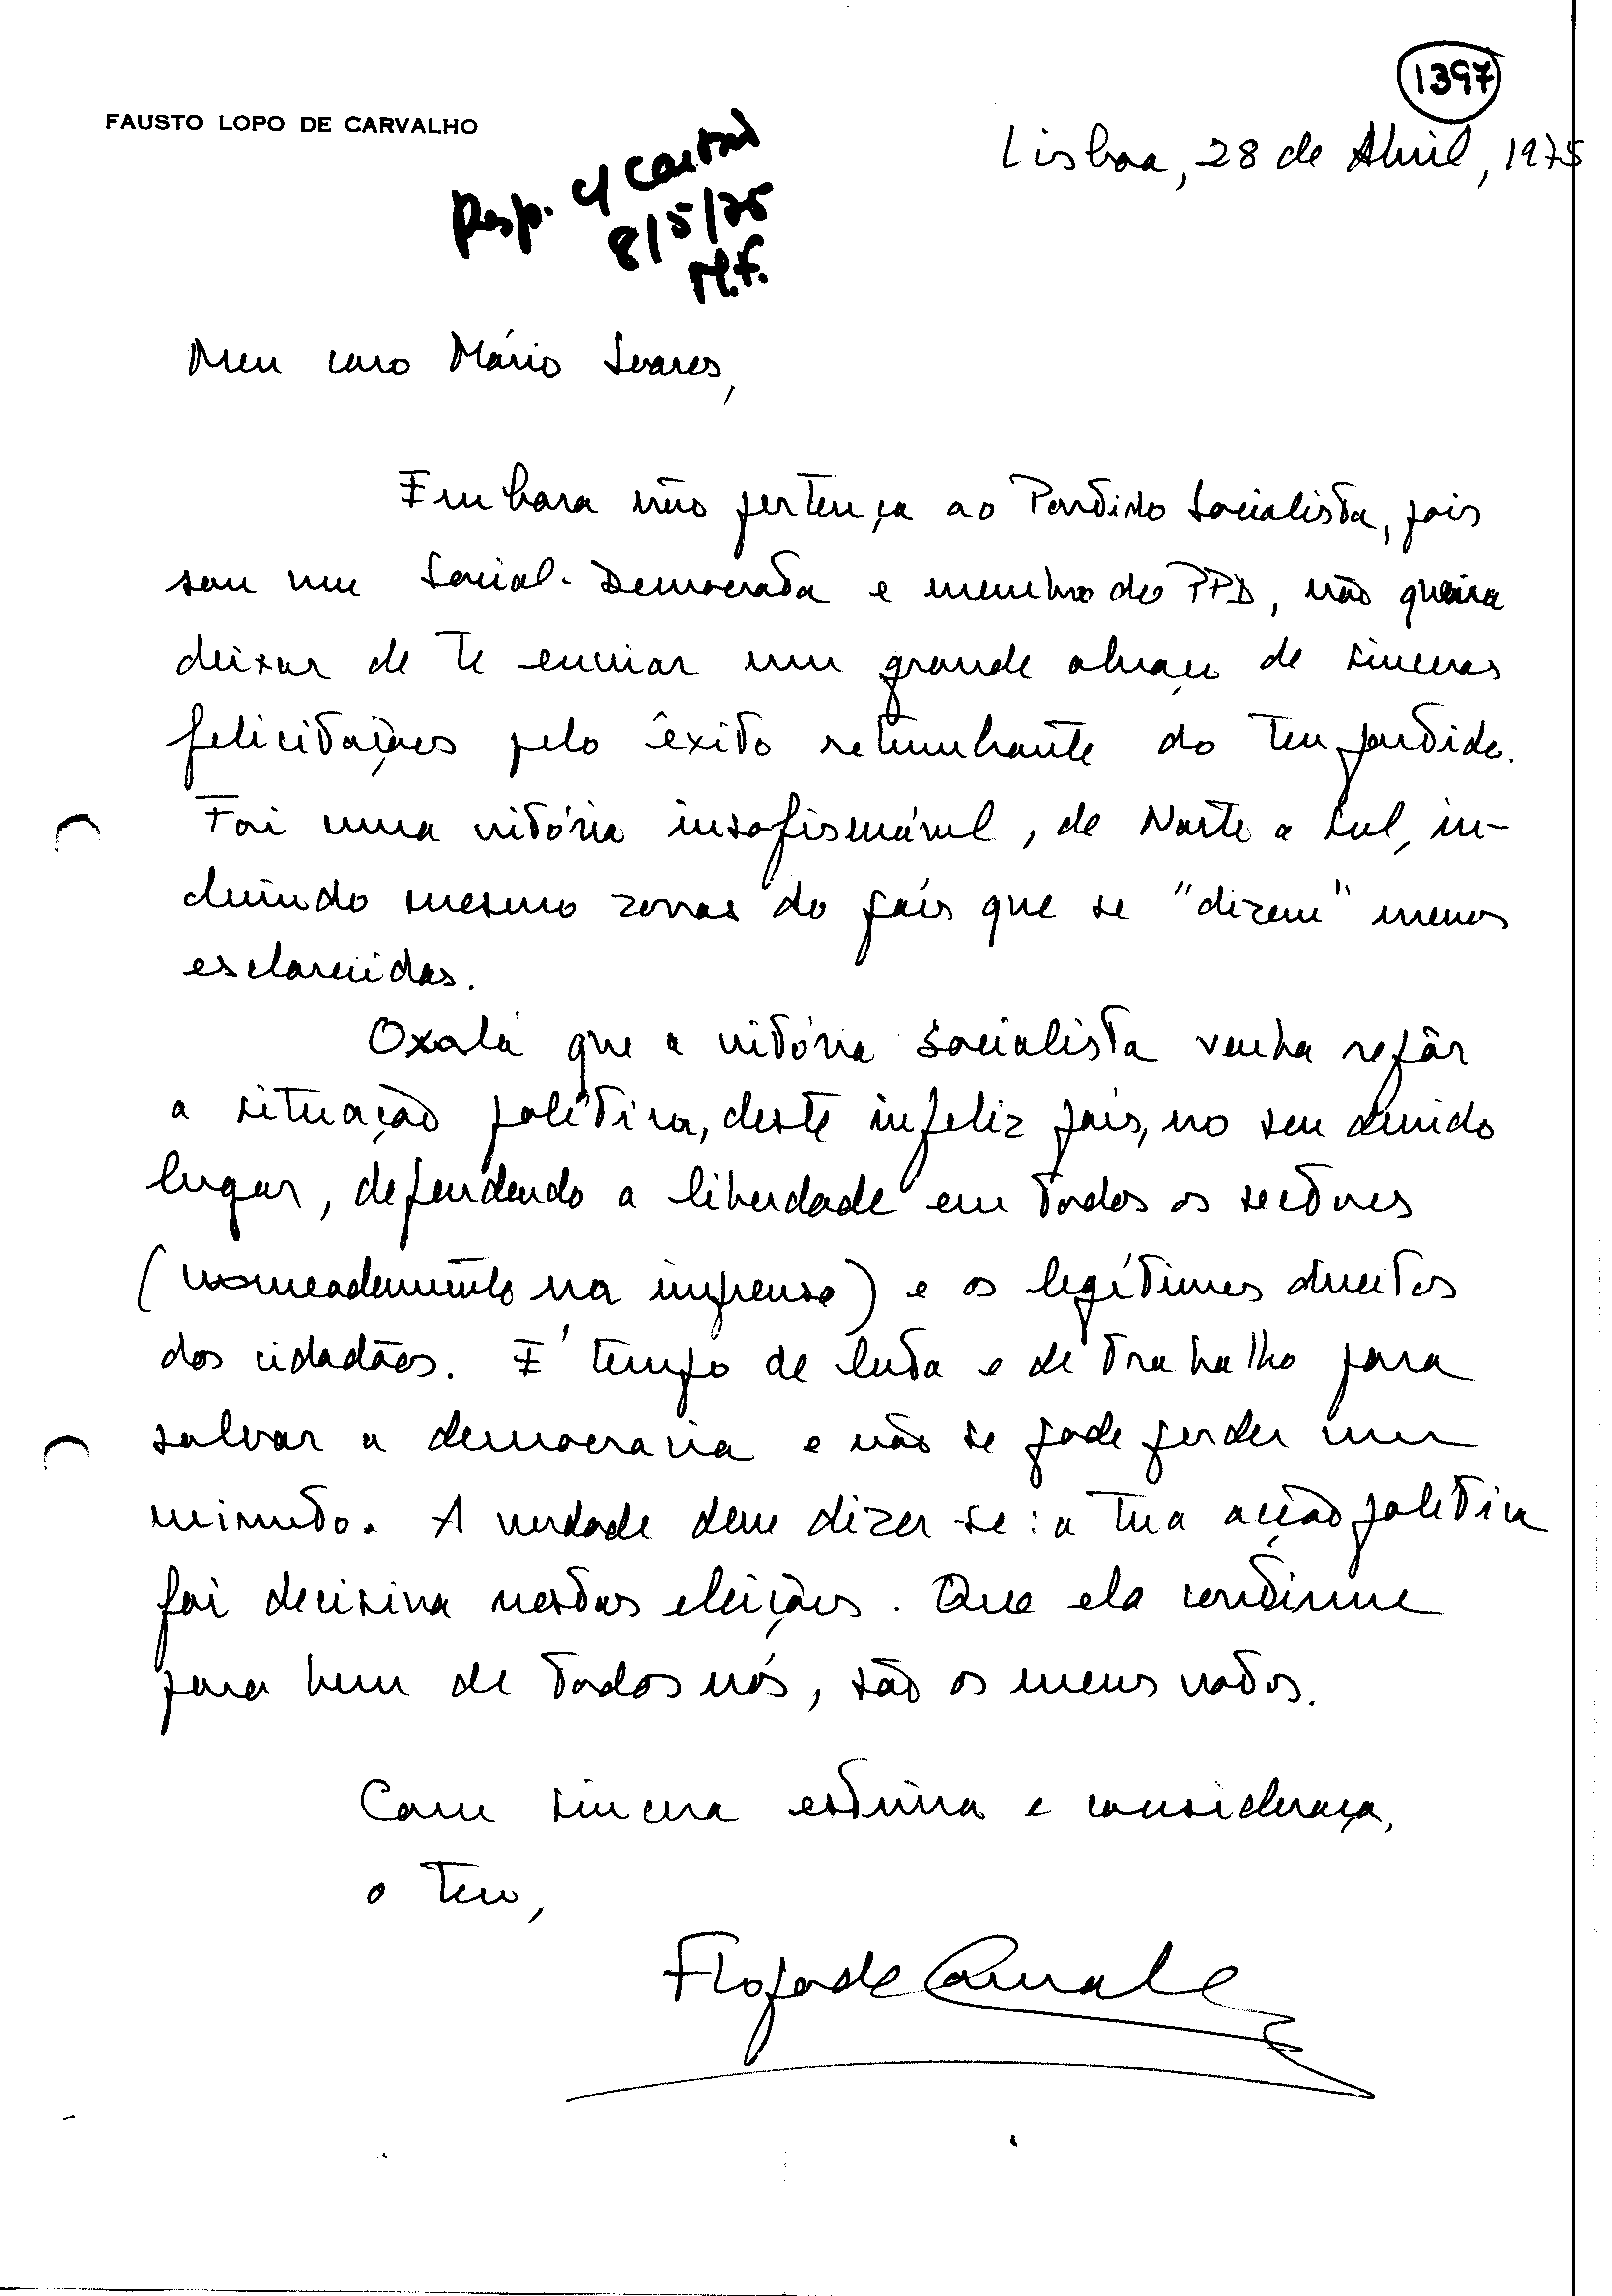 1397
FAUSTO LOPO DE CARVALHO
Lisboa, 28 de Abril, 1975
Resp. c/ cartão
8/5/75
M.F.
Meu caro Mário Soares,
Embora não pertença ao Partido Socialista, pois
sou um Social-Democrata e membro do PPD, não queria
deixar de te enviar um grande abraço de sinceras
felicitações pelo êxito retumbante do teu partido.
Foi uma vitória insofismável, de Norte a Sul, in-
cluindo mesmo zonas do país que se "dizem" menos
esclarecidas.
Oxalá que a vitória socialista venha repôr
a situação política, deste infeliz país, no seu devido
lugar, defendendo a liberdade em todos os sectores
(nomeadamente na imprensa) e os legítimos direitos
dos cidadãos. É tempo de luta e de trabalho para
salvar a democracia e não se pode perder um
minuto. A verdade deve dizer-se: a tua acção política
foi decisiva nestas eleições. Que ela continue
para bem de todos nós, são os meus votos.
Com sincera estima e consideração,
o teu,
FLopo de Carvalho